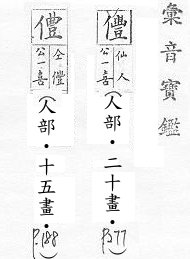 彙音寶鑑
仙人
公一喜
(人部・二十畫・
P.377)
僼
仝僼
公一喜
(人部・十五畫・
P.188)